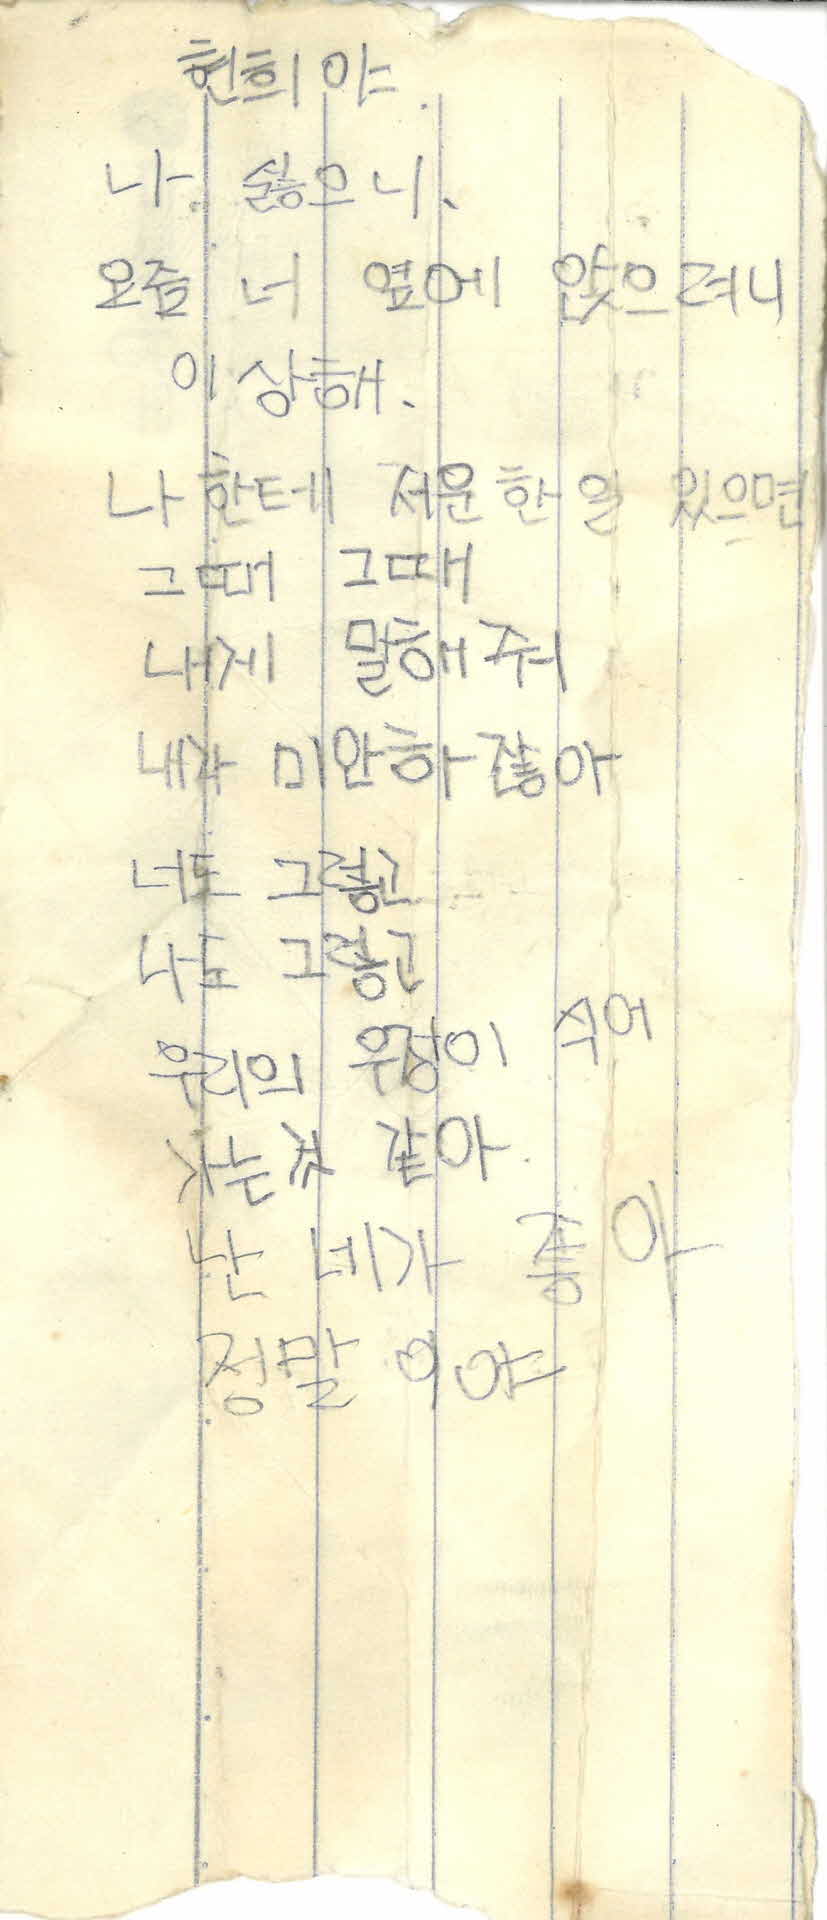 현희야.
나 싫으니.
요즘 너 옆에 앉으려니
이상해.
나한테 서운한 일 있으면
그때 그때
내게 말해줘
내가 미안하잖아
너도 그렇고
나도 그렇고
우리의 우정이 쉬어
지는것 같아.
난 네가 좋아
정말이야